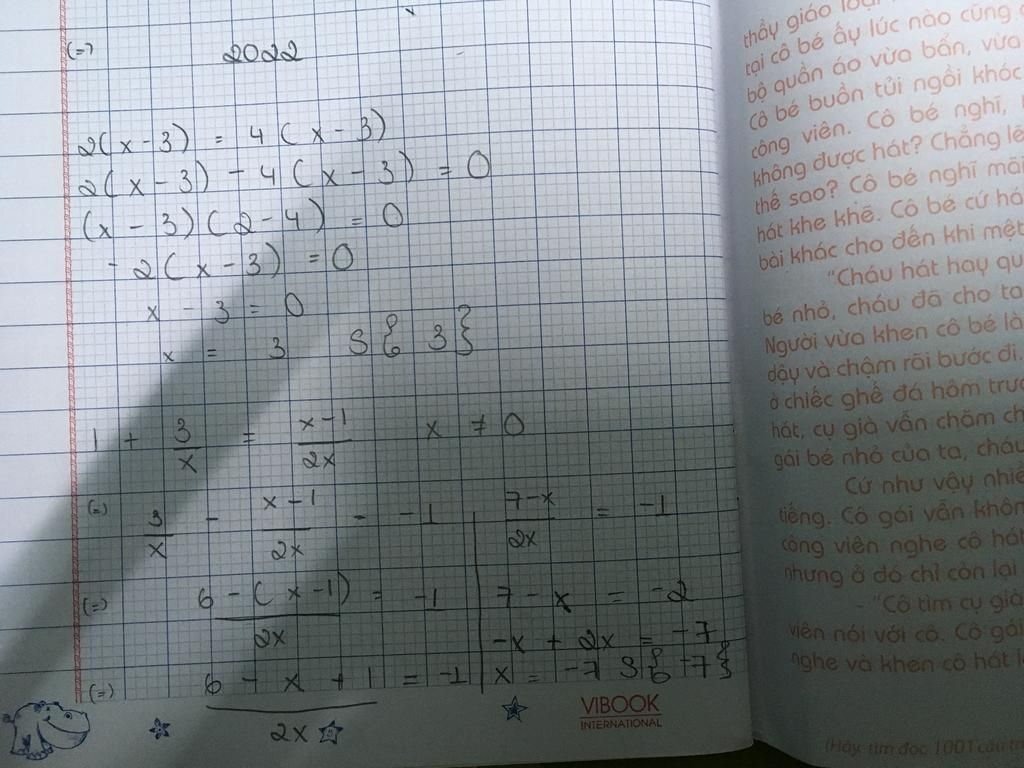 (=) 2022
2(x-3) = 4(x-3)
2(x-3) - 4(x-3) = 0
(x-3)(2-4) = 0
-2(x-3) = 0
x - 3 = 0
x = 3 S{3}
1 + 3/x = x-1/2x x ≠ 0
(=) 3/x - x-1/2x = -1
(=) 6-(x-1)/2x = -1
(=) 6-x+1/2x = -1
7-x/2x = -1
7-x = -2
-x + 2x = -7
x = -7 S{-7}
VIBOOK
INTERNATIONAL
thầy giáo
tại cô bé ấy lúc nào cũng
bộ quần áo vừa bẩn, vừa
Cô bé buồn tủi ngồi khóc
công viên. Cô bé nghĩ,
không được hát? Chẳng lẽ
thế sao? Cô bé nghĩ mãi
hát khe khẽ. Cô bé cứ hát
bài khác cho đến khi mệt
"Cháu hát hay
bé nhỏ, cháu đã cho ta
Người vừa khen cô bé là
dậy và chậm rãi bước đi.
ở chiếc ghế đá hôm
hát, cụ già vẫn chăm
gái bé nhỏ của ta, cháu
Cứ như vậy
tiếng. Cô gái vẫn
công viên nghe cô hát
nhưng ở đó chỉ còn lại
- "Cô tìm cụ già
viên nói với cô. Cô gái
nghe và khen cô hát
(Hãy tìm đọc 1001 câu